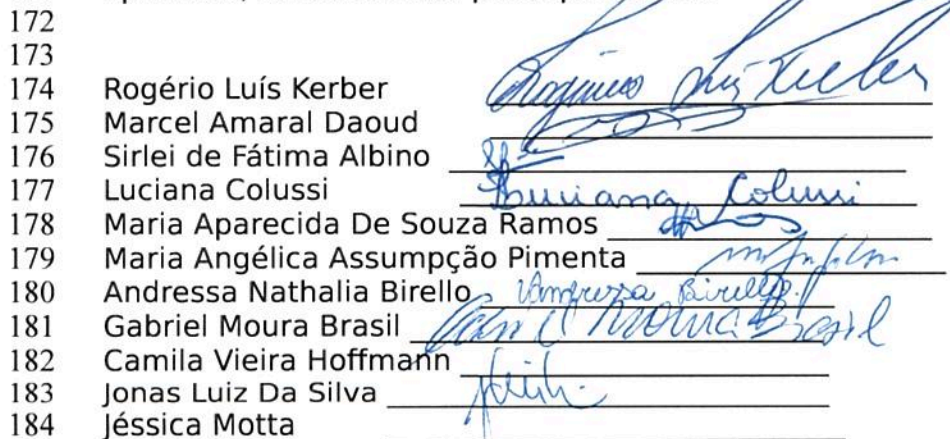 172
173
174 Rogério Luís Kerber Rogério Luís Kerber
175 Marcel Amaral Daoud
176 Sirlei de Fátima Albino
177 Luciana Colussi Luciana Colussi
178 Maria Aparecida De Souza Ramos
179 Maria Angélica Assumpção Pimenta
180 Andressa Nathalia Birello Andressa Birello
181 Gabriel Moura Brasil Moura Brasil
182 Camila Vieira Hoffmann
183 Jonas Luiz Da Silva
184 Jéssica Motta